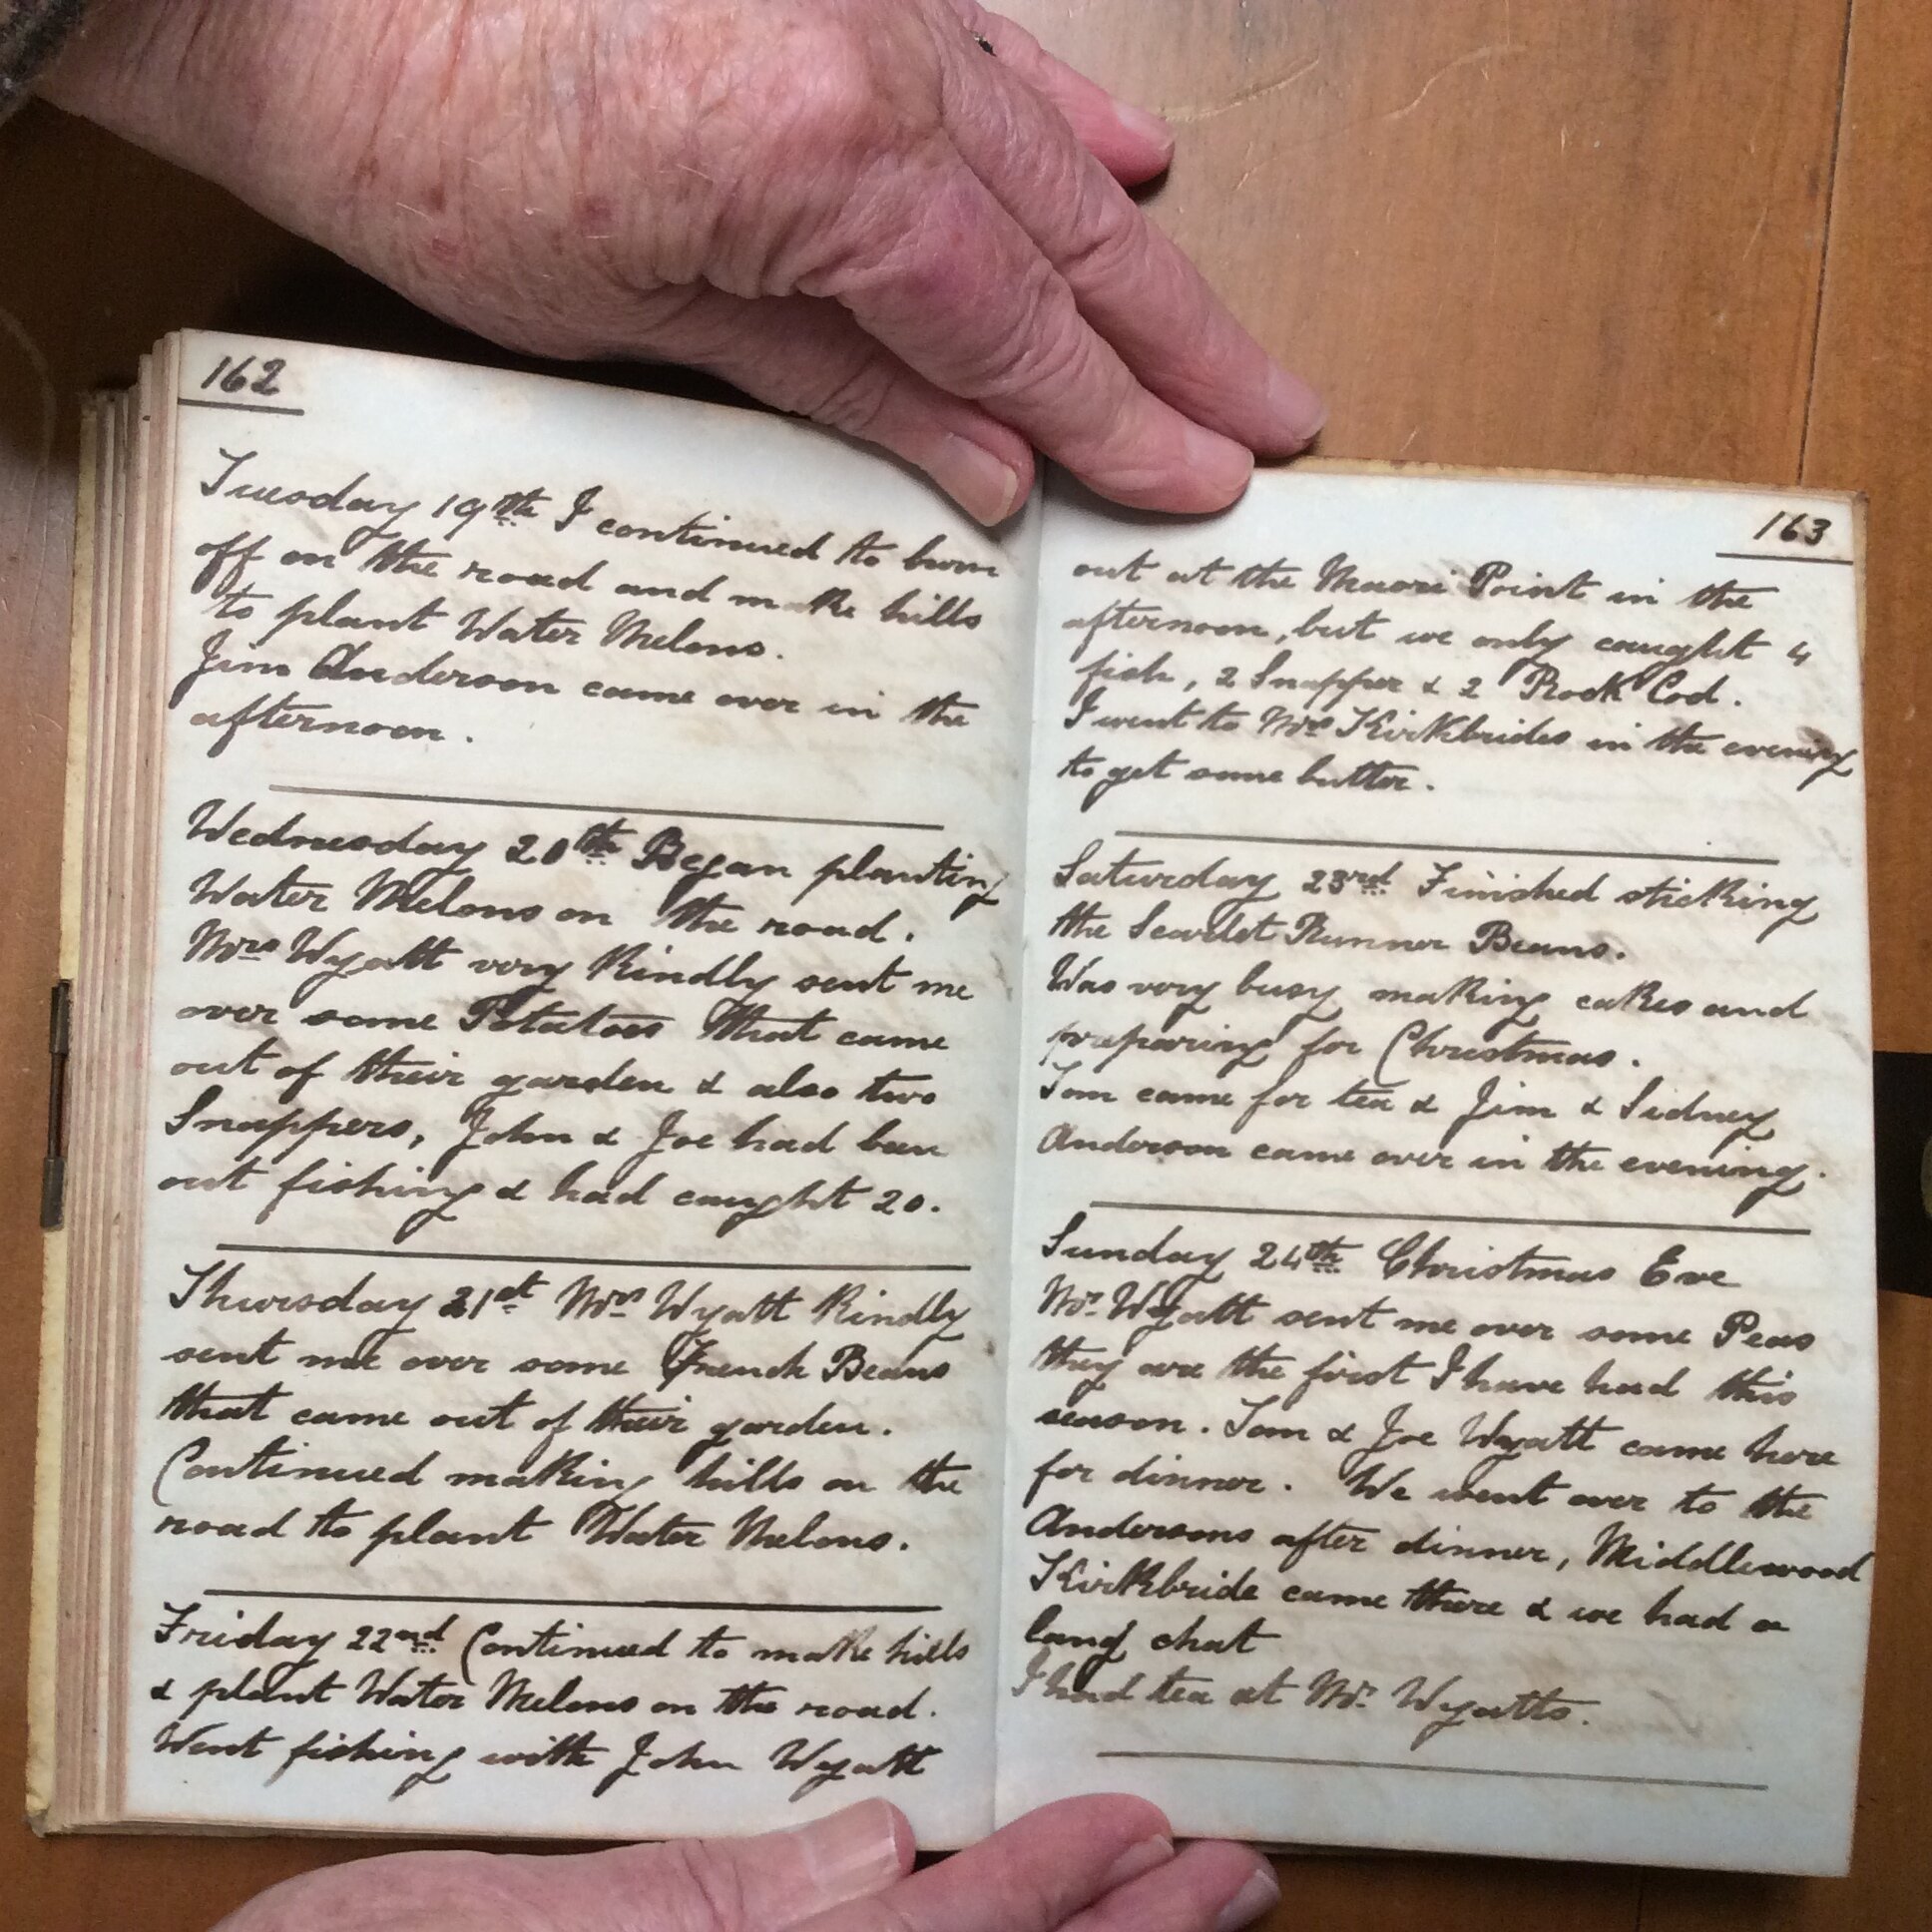 162
Tuesday 19th I continued to burn
off on the road and make hills
to plant Water Melons.
Jim Anderson came over in the
afternoon.
Wednesday 20th Began planting
Water Melons on the road.
Mrs Wyatt very kindly sent me
over some Potatoes that came
out of their garden & also two
Snappers, John & Joe had been
out fishing & had caught 20.
Thursday 21st Mrs Wyatt kindly
sent me over some French Beans
that came out of their garden.
Continued making hills on the
road to plant Water Melons.
Friday 22nd Continued to make hills
& plant Water Melons on the road.
Went fishing with John Wyatt
163
out at the Maori Point in the
afternoon, but we only caught 4
fish, 2 Snapper & 2 Rock Cod.
I went to Mrs Kirkbrides in the evening
to get some butter.
Saturday 23rd Finished sticking
the Scarlet Runner Beans.
Was very busy making cakes and
preparing for Christmas.
Tom came for tea & Jim & Sidney
Anderson came over in the evening.
Sunday 24th Christmas Eve
Mr Wyatt sent me over some Peas
they are the first I have had this
season. Tom & Joe Wyatt came here
for dinner. We went over to the
Andersons after dinner, Middlewood
Kirkbride came there & we had a
long chat
I had tea at Mr Wyatts.